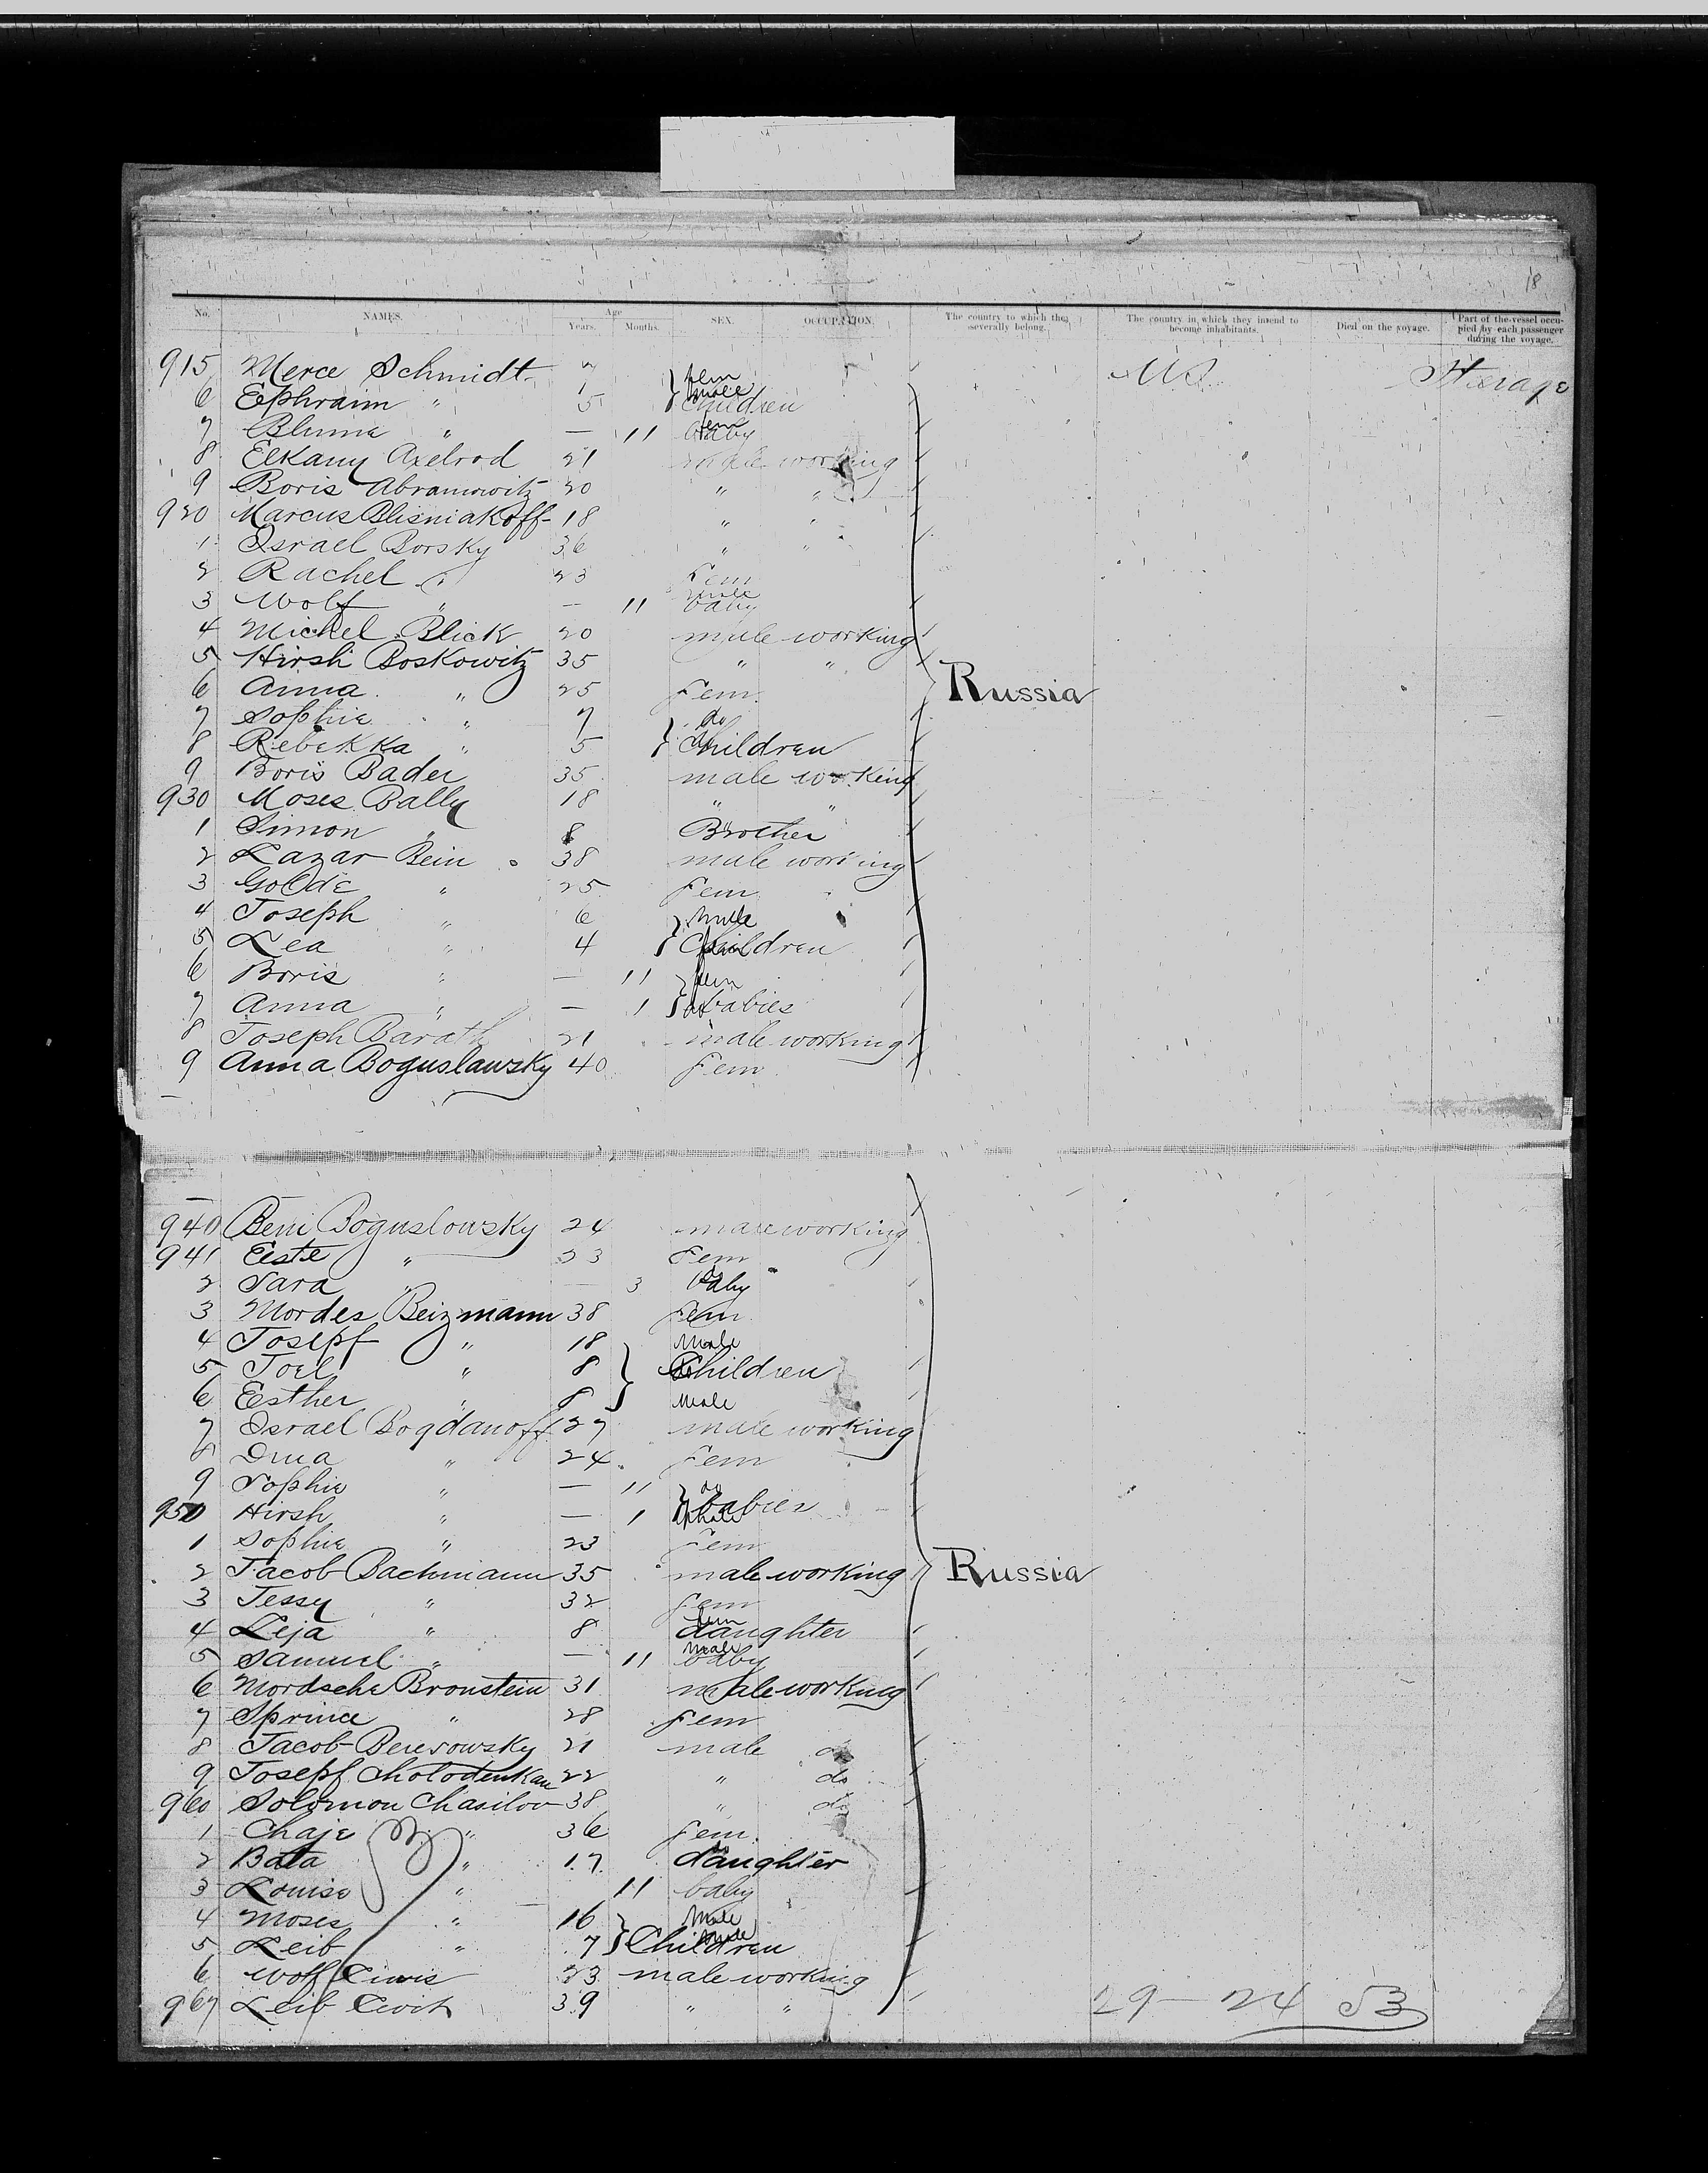 18
No. NAMES. Age Years. Months. SEX. OCCUPATION. The country to which they severally belong. The country in which they intend to become inhabitants. Died on the voyage. Part of the vessel occupied by each passenger during the voyage.
915 Merce Schmidt 7 fem US Steerage
6 Ephraim " 5 male children
7 Blume " — 11 fem baby
8 Elkany Axelrod 21 male working
9 Boris Abramowitz 20 " "
920 Marcus Blisniakoff 18 " "
1 Israel Borsky 36 " "
2 Rachel " 23 Fem
3 Wolf " — 11 male baby
4 Michel Blick 20 male working
5 Hirsh Boskowitz 35 " "
6 Anna " 25 Fem Russia
7 Sophie " 7 do
8 Rebekka " 5 children
9 Boris Bader 35 male working
930 Moses Bally 18 " "
1 Simon " 8 Brother
2 Lazar Bein 38 male working
3 Golde " 25 Fem
4 Joseph " 6 male
5 Lea " 4 children
6 Boris " — 11 fem
7 Anna " — 1 do babies
8 Joseph Barath 21 male working
9 Anna Boguslawsky 40 Fem
940 Beni Boguslowsky 24 male working
941 Eiste " 23 Fem
2 Sara " — 3 baby
3 Mordes Beizmann 38 Fem
4 Josepf " 18 Male
5 Joel " 8 Children
6 Eesther " 8 Male
7 Israel Bogdanoff 27 male working
8 Dina " 24 Fem
9 Sophie " — 11 do
950 Hirsh " — 1 babies
1 Sophie " 23 Fem
2 Jacob Bachmann 35 male working Russia
3 Jessy " 32 Fem
4 Leja " 8 fem daughter
5 Samuel " — 11 Male baby
6 Mordsche Bronstein 31 male working
7 Sprince " 28 Fem
8 Jacob Beresowsky 21 male do
9 Josepf Cholodenkan 22 " do
960 Solomon Chasilow 38 " do
1 Chaje " 36 Fem
2 Bata " 17 daughter
3 Louise " 11 baby
4 Moses " 16 Male
5 Leib " 7 Male Children
6 Wolf 23 male working
967 Leib 39 " "
29 — 24 53